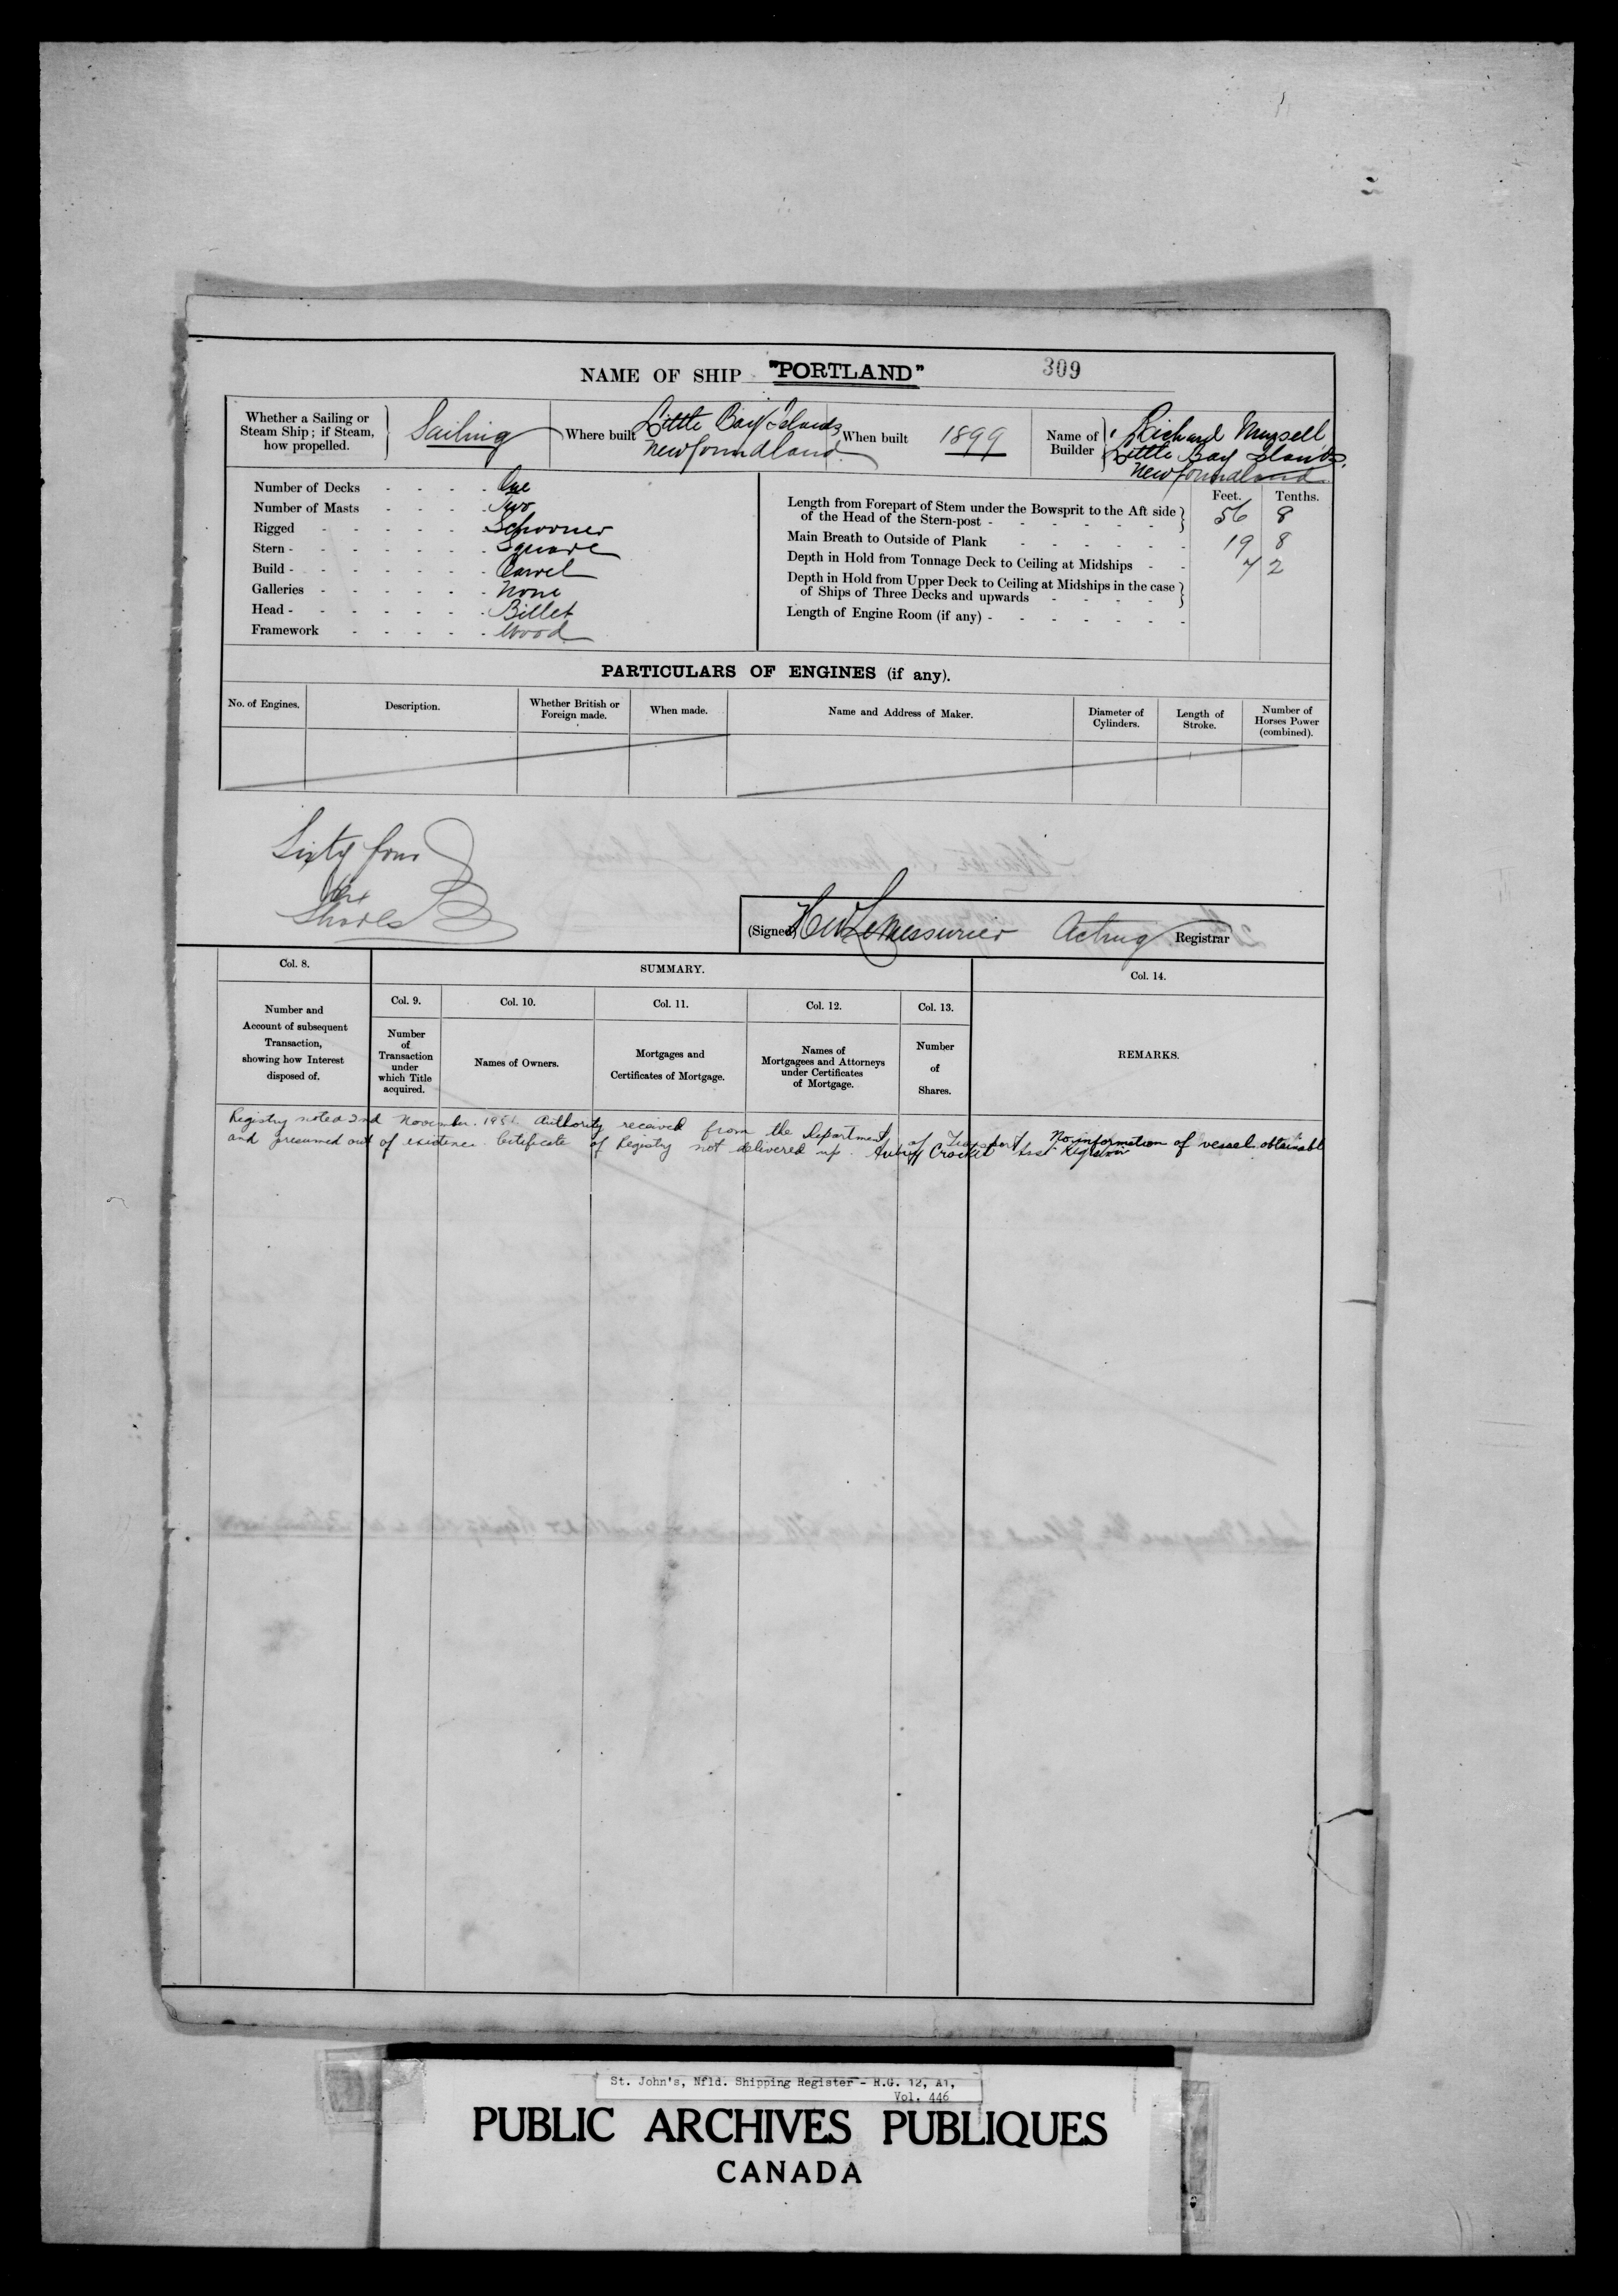 NAME OF SHIP "PORTLAND" 309
Whether a Sailing or Steam Ship; if Steam, how propelled. Sailing
Where built Little Bay Islands Newfoundland
When built 1899
Name of Builder Richard Mursell, Little Bay Islands, Newfoundland
Number of Decks - - - - One
Number of Masts - - - - Two
Rigged - - - - - Schooner
Stern - - - - - - Square
Build - - - - - - Carvel
Galleries - - - - - None
Head - - - - - - Billet
Framework - - - - - Wood
Feet. Tenths.
Length from Forepart of Stem under the Bowsprit to the Aft side of the Head of the Stern-post - - - - - 56 8
Main Breath to Outside of Plank - - - - - - 19 8
Depth in Hold from Tonnage Deck to Ceiling at Midships - - 7 2
Depth in Hold from Upper Deck to Ceiling at Midships in the case of Ships of Three Decks and upwards - - - -
Length of Engine Room (if any) - - - - - - -
PARTICULARS OF ENGINES (if any).
No. of Engines.
Description.
Whether British or Foreign made.
When made.
Name and Address of Maker.
Diameter of Cylinders.
Length of Stroke.
Number of Horses Power (combined).
Sixty four
Shares
(Signed) H W LeMessurier Acting Registrar
Col. 8.
SUMMARY.
Col. 14.
Col. 9.
Col. 10.
Col. 11.
Col. 12.
Col. 13.
Number and Account of subsequent Transaction, showing how Interest disposed of.
Number of Transaction under which Title acquired.
Names of Owners.
Mortgages and Certificates of Mortgage.
Names of Mortgagees and Attorneys under Certificates of Mortgage.
Number of Shares.
REMARKS.
Registry noted 2nd November. Authority received from the Department of Transport. No information of vessel obtainable
and presumed out of existence. Certificate of Registry not delivered up. Crocker Asst Registrar
St. John's, Nfld. Shipping Register - R.G. 12, A1,
Vol. 446
PUBLIC ARCHIVES PUBLIQUES
CANADA